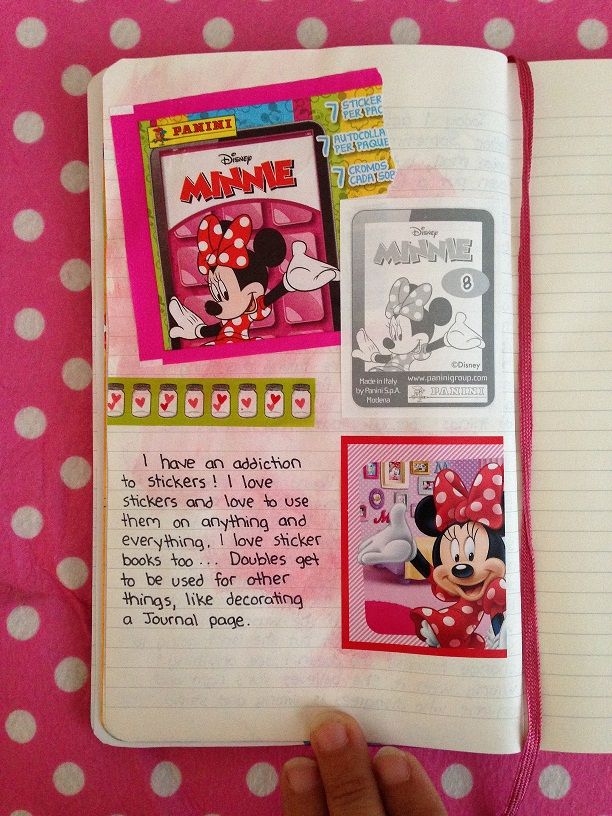 PANINI
7 STICKER
PER PAC
7 AUTOCOLLA
PER PAQUE
7 CROMOS
CADA SOP
Disney
MINNIE
Disney
MINNIE
8
©Disney
Made in Italy
by Panini S.p.A.
Modena
www.paninigroup.com
PANINI
I have an addiction
to stickers! I love
stickers and love to use
them on anything and
everything. I love sticker
books too... Doubles get
to be used for other
things, like decorating
a Journal page.